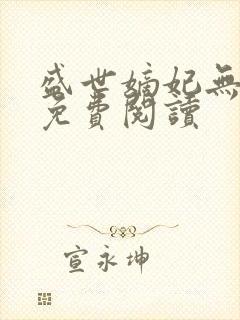 盛世嫡妃無
免費閱讀
宣永坤